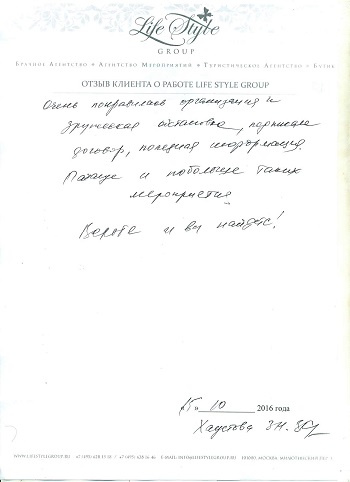 Life Style
GROUP
Брачное Агентство • Агентство Мероприятий • Туристическое Агентство • Бутик
ОТЗЫВ КЛИЕНТА О РАБОТЕ LIFE STYLE GROUP
Очень понравилась организация и
дружеская обстановка, подписала
договор, полезная информация.
и побольше таких
мероприятий
Верьте и вы найдете!
10 2016 года
Хаустова
WWW.LIFESTYLEGROUP.RU